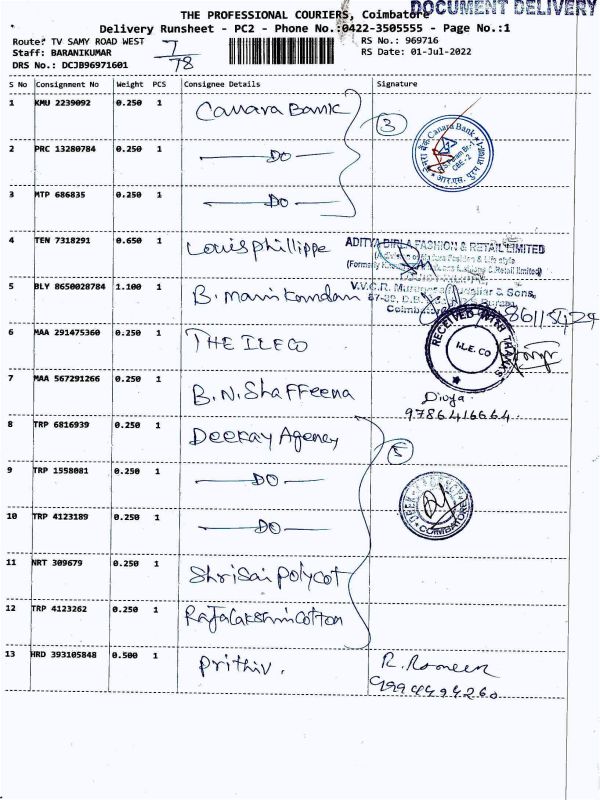 DOCUMENT DELIVERY
THE PROFESSIONAL COURIERS, Coimbatore
Delivery Runsheet - PC2 - Phone No.:0422-3505555 - Page No.:1
Route: TV SAMY ROAD WEST
RS No.: 969716
Staff: BARANIKUMAR
RS Date: 01-Jul-2022
DRS No.: DCJB96971601
7/78
S No Consignment No Weight PCS Consignee Details Signature
1 KMU 2239092 0.250 1 Canara Bank
3
Canara Bank
CBE-2
2 PRC 13280784 0.250 1 DO
3 MTP 686835 0.250 1 DO
4 TEN 7318291 0.650 1 Louisphillippe
ADITYA BIRLA FASHION & RETAIL LIMITED
5 BLY 8650028784 1.100 1 B. manikandan
V.V.C.R. & Sons,
6 MAA 291475360 0.250 1 THE ILECO
RECEIVED WITH THANKS
I.L.E. CO
7 MAA 567291266 0.250 1 B.N.Shaffeena
Divya
9786416664
8 TRP 6816939 0.250 1 Deekay Agency
5
9 TRP 1558081 0.250 1 DO
COIMBATORE
10 TRP 4123189 0.250 1 DO
11 NRT 309679 0.250 1 Shrisai Polycot
12 TRP 4123262 0.250 1 Rajalakshmi Cotton
13 HRD 393105848 0.500 1 Prithiv.
9994494260